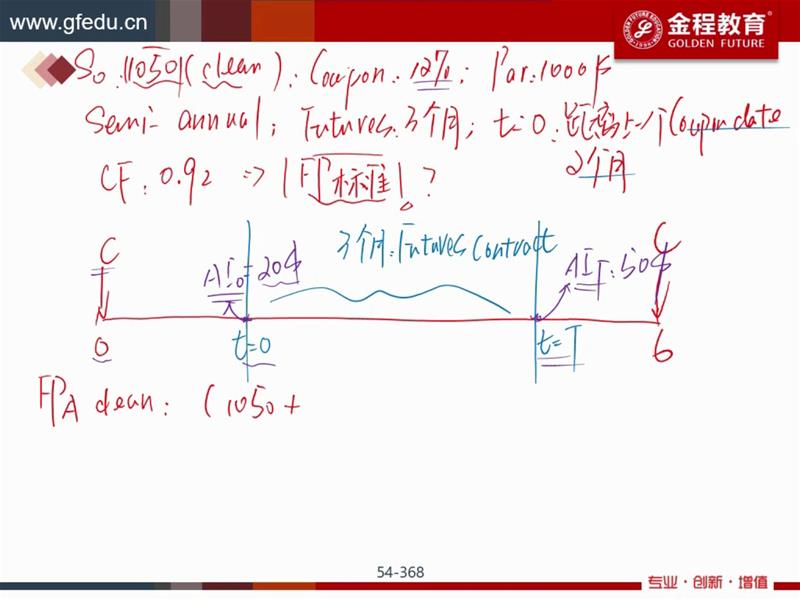 www.gfedu.cn
金程教育
GOLDEN FUTURE
S0:1050(clean); Coupon:12%; Par:1000$
Semi-annual; Futures:3个月; t=0:距离上一个Coupon date
2个月
CF:0.92 => FP标准?
3个月:Futures Contract
C
AI0=20$
AIT:50$
C
0
t=0
t=T
6
FPA clean: (1050+
54-368
专业·创新·增值